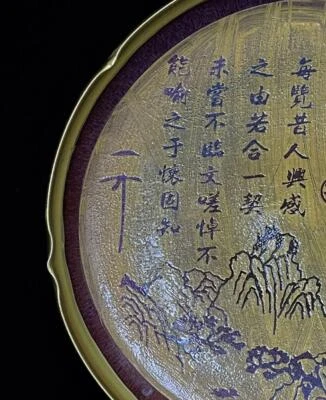 每覽昔人興感
之由若合一契
未嘗不臨文嗟悼不
能喻之于懷固知